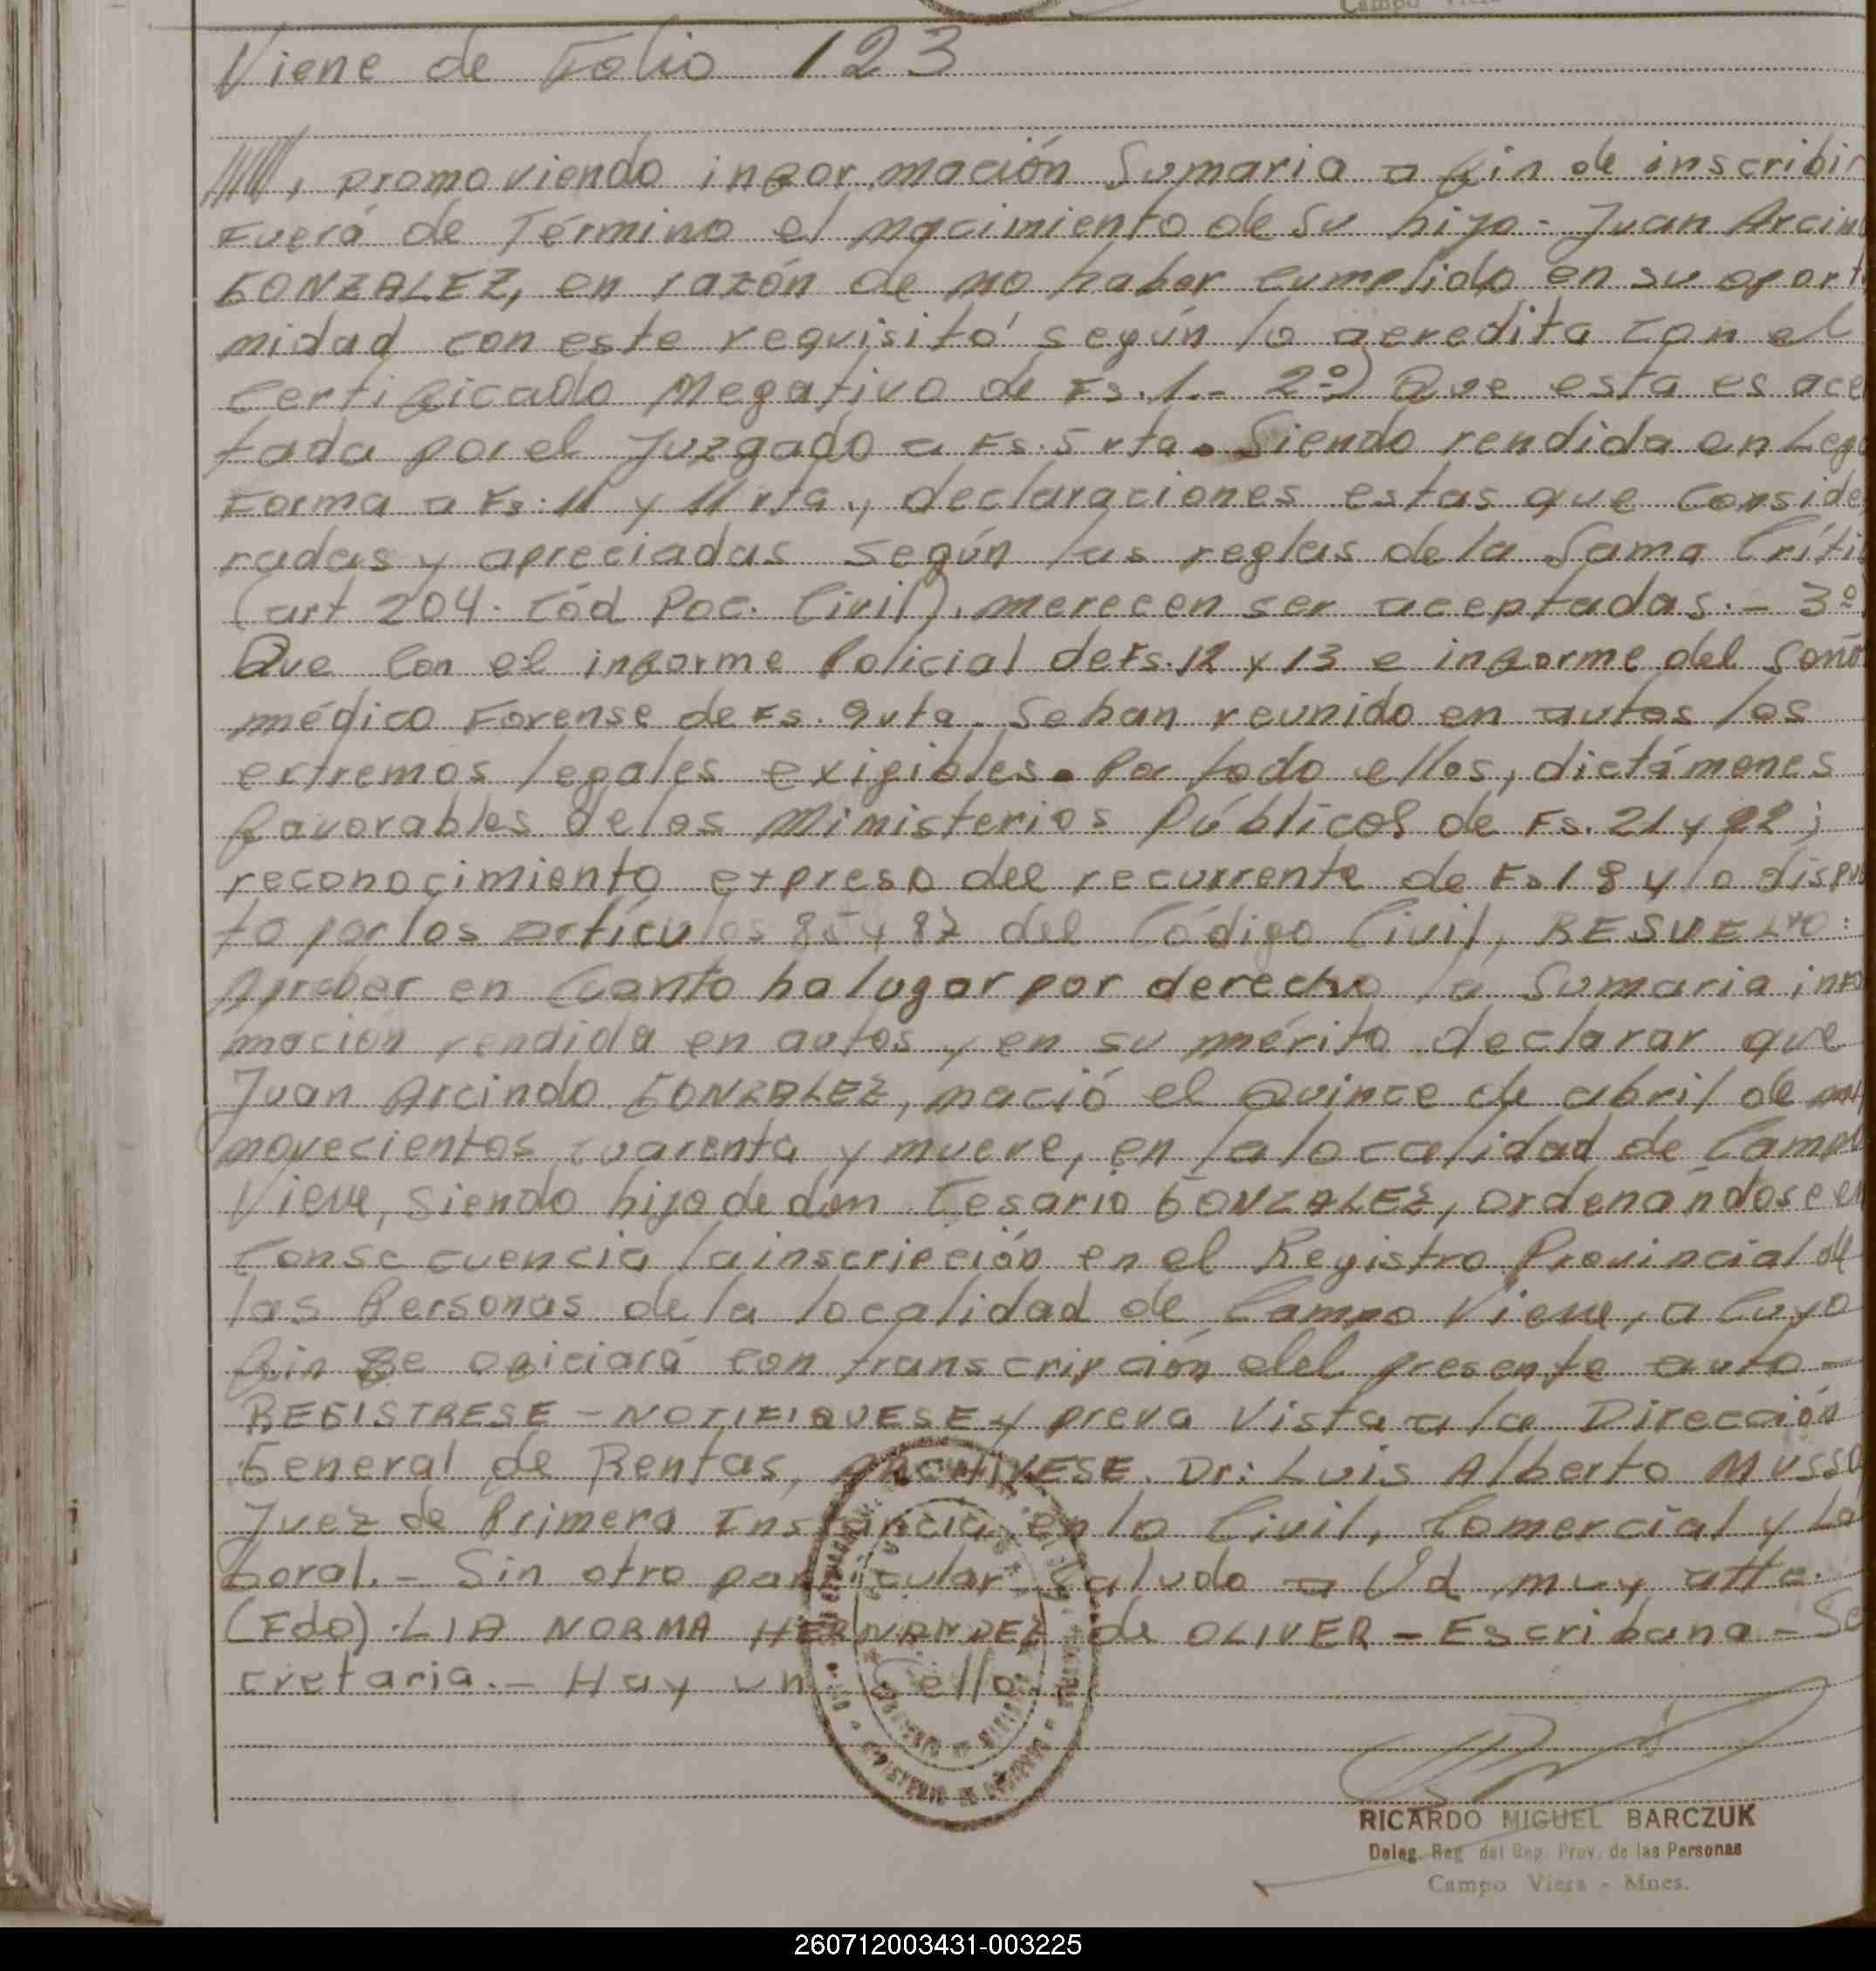 Viene de Folio 123
, promoviendo información Sumaria a fin de inscribir
Fuera de Término el nacimiento de su hijo - Juan Arcin
GONZALEZ, en razón de no haber cumplido en su oport
nidad con este requisito según lo acredita con el
certificado Negativo de Fs. 1.- 2º) Que esta es ace
tada por el Juzgado a Fs. 5 vta. Siendo rendida en Leg
Forma a Fs: 11 y 11 vta., declaraciones estas que conside
radas y apreciadas según las reglas de la Sana Críti
(art 204. Cód Poc. Civil), merecen ser aceptadas.- 3º
Que con el informe Policial de Fs. 12 y 13 e informe del Seño
médico Forense de Fs. 9 vta. Se han reunido en autos los
extremos legales exigibles. Por todo ellos, dictámenes
favorables de los Ministerios Públicos de Fs. 21 y 22;
reconocimiento expreso del recurrente de Fs 18 y lo dispu
to por los artículos 85 y 87 del Código Civil, RESUELVO:
Aprobar en Cuanto ha lugar por derecho la Sumaria info
mación rendida en autos y en su mérito declarar que
Juan Arcindo GONZALEZ, nació el Quince de abril de mil
novecientos cuarenta y nueve, en la localidad de Campo
Viera, siendo hijo de don Cesario GONZALEZ, ordenándose en
consecuencia la inscripción en el Registro Provincial de
las Personas de la localidad de Campo Viera, a Cuyo
fin se oficiará con transcripción del presente auto -
REGISTRESE - NOTIFIQUESE y preva Vista a la Dirección
General de Rentas, ARCHIVESE. Dr: Luis Alberto Musso
Juez de Primera Instancia en lo Civil, Comercial y La
boral.- Sin otro particular Saludo a Ud muy atte.
(Fdo). LIA NORMA HERNANDEZ de OLIVER - Escribana - Se
cretaria.- Hay un Sello.
RICARDO MIGUEL BARCZUK
Deleg. Reg del Reg. Prov. de las Personas
Campo Viera - Mnes.
260712003431-003225